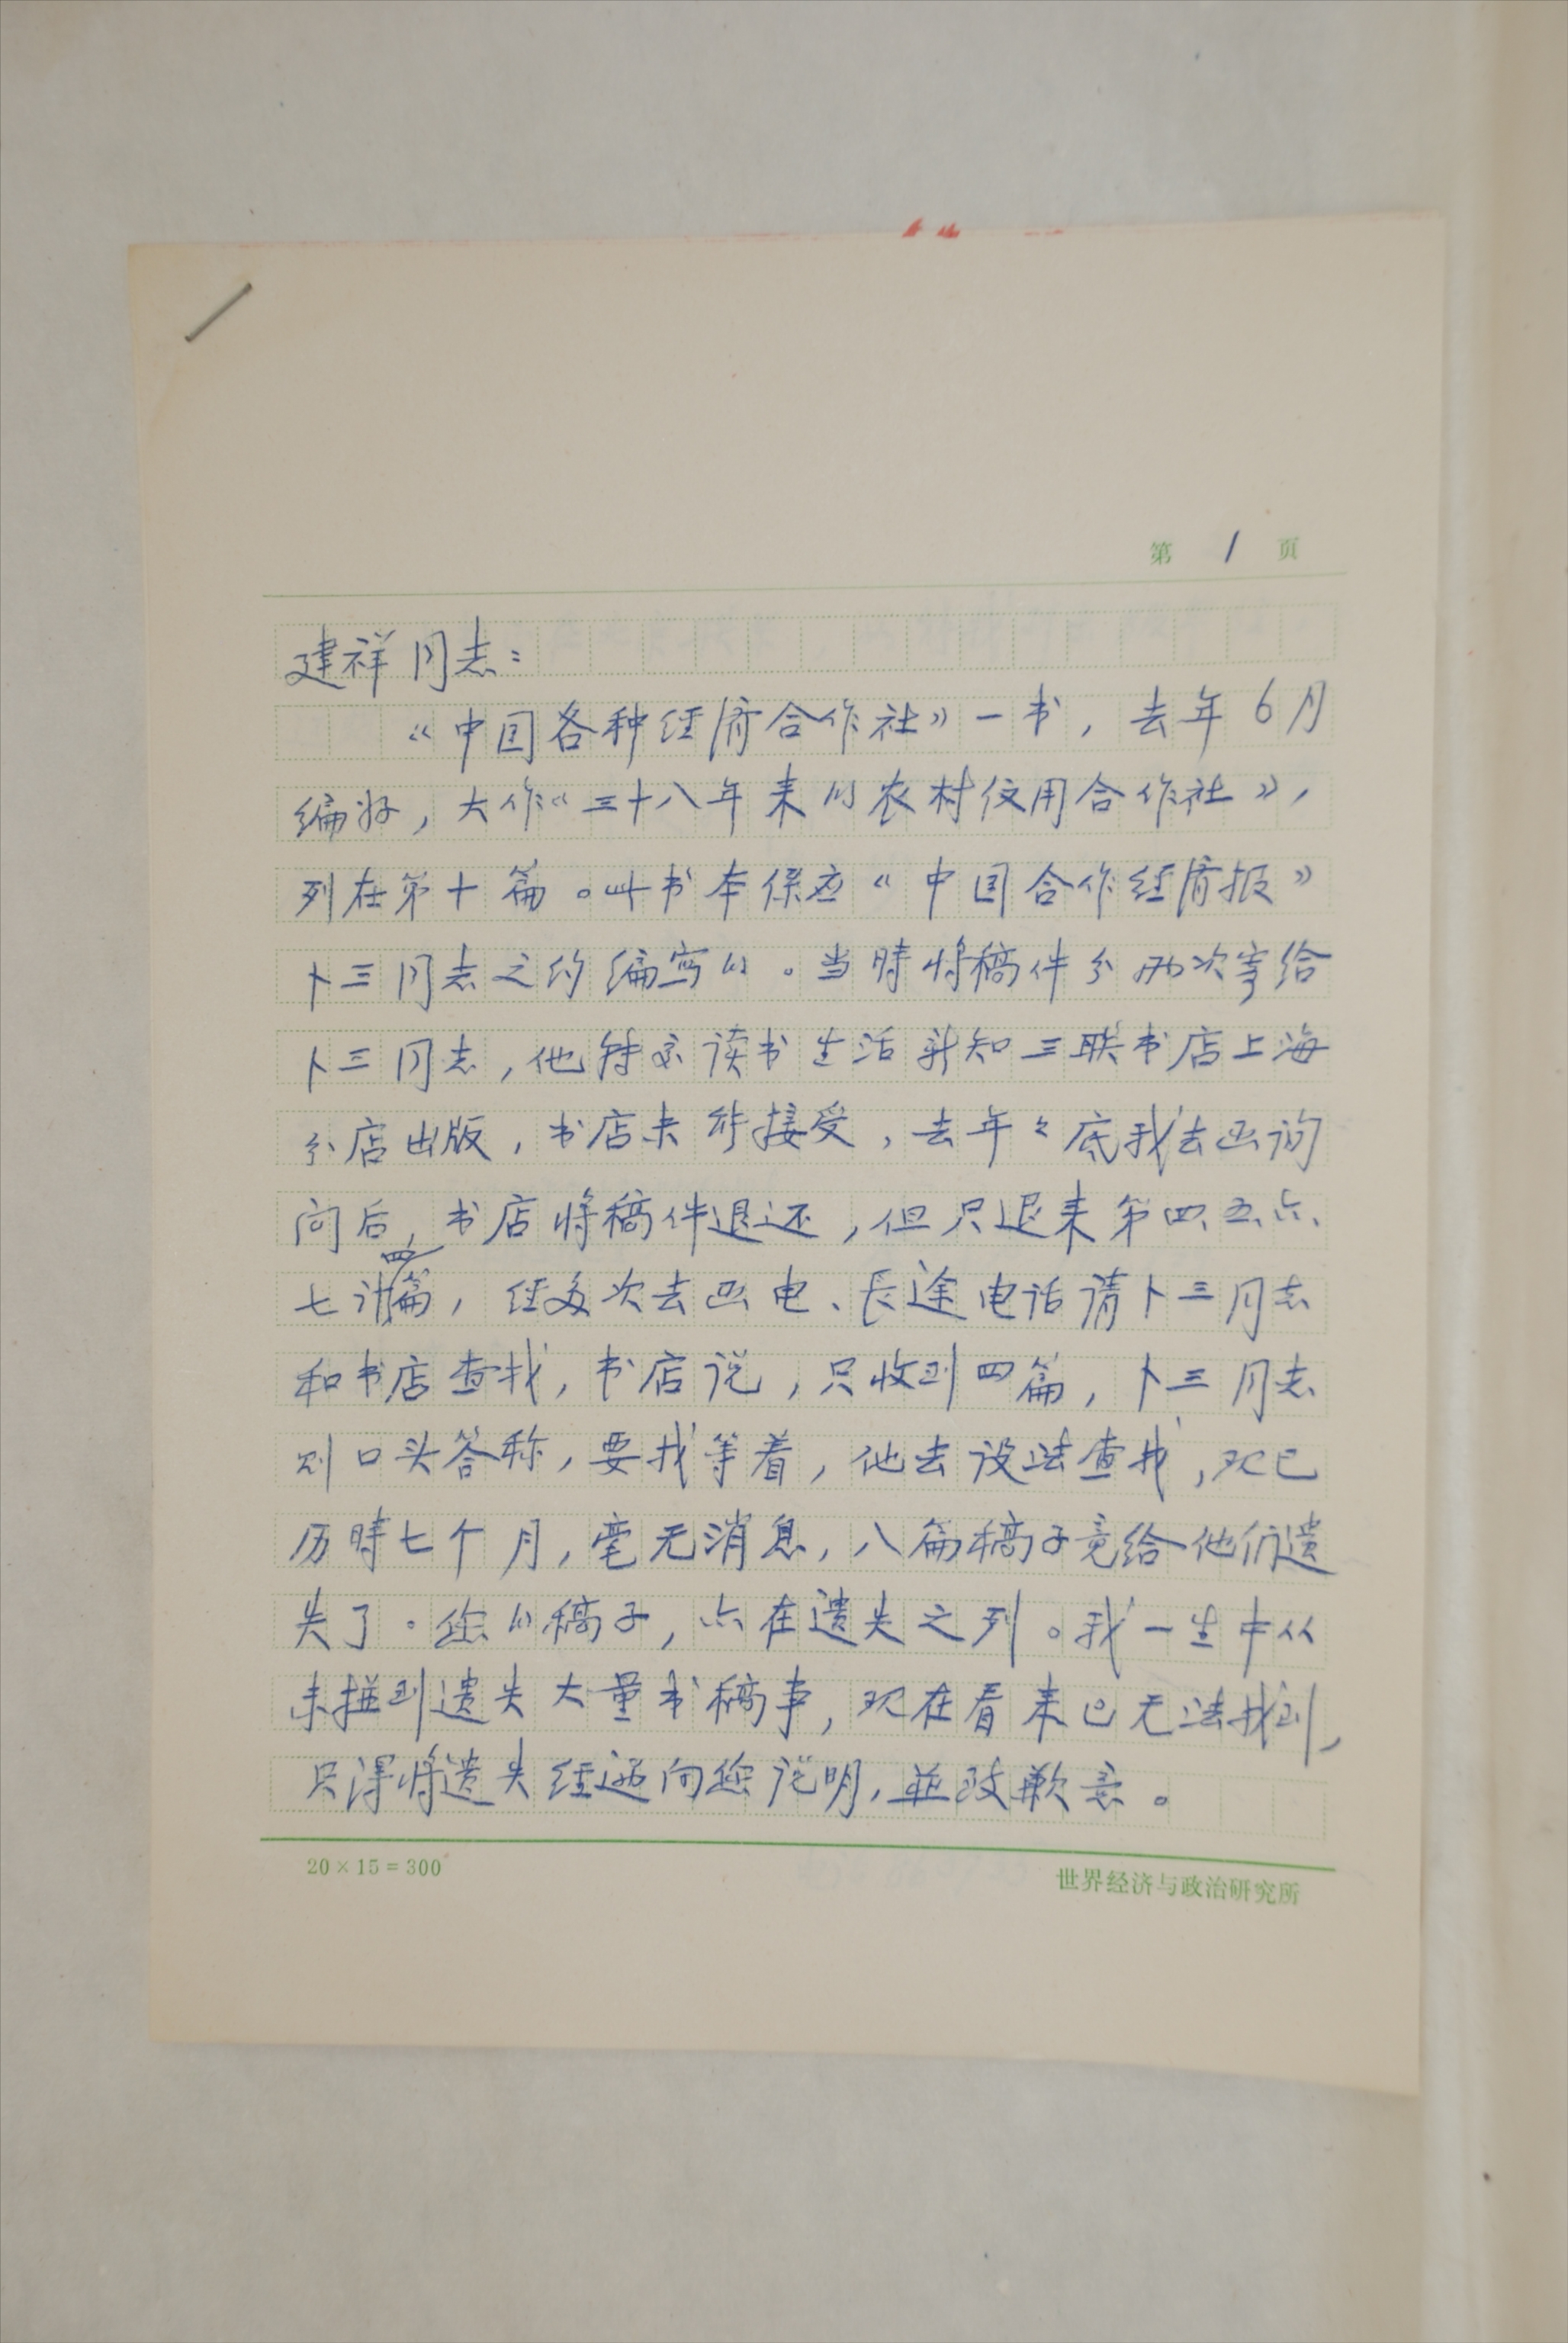 第 1 页
建祥同志：
《中国各种经济合作社》一书，去年6月
编好，大作《三十八年来的农村信用合作社》，
列在第十篇。此书本系应《中国合作经济报》
卜三同志之约编写的。当時将稿件分两次寄给
卜三同志，他转交读书生活新知三联书店上海
分店出版，书店未能接受，去年年底我去函询
问后，书店将稿件退还，但只退来第四、五、六、
七计四篇，经多次去函电、长途电话请卜三同志
和书店查找，书店说，只收到四篇，卜三同志
则口头答称，要我等着，他去设法查找，现已
历時七个月，毫无消息，八篇稿子竟给他们遗
失了。您的稿子，亦在遗失之列。我一生中从
未碰到遗失大量书稿事，现在看来已无法找到，
只得将遗失经过向您说明，並致歉意。
20×15=300
世界经济与政治研究所